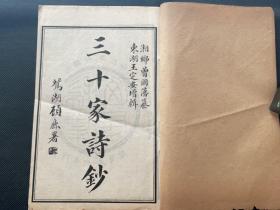 湘鄉曾國藩纂
東湖王定安增輯
三十家詩鈔
鴛湖顧󠄁署